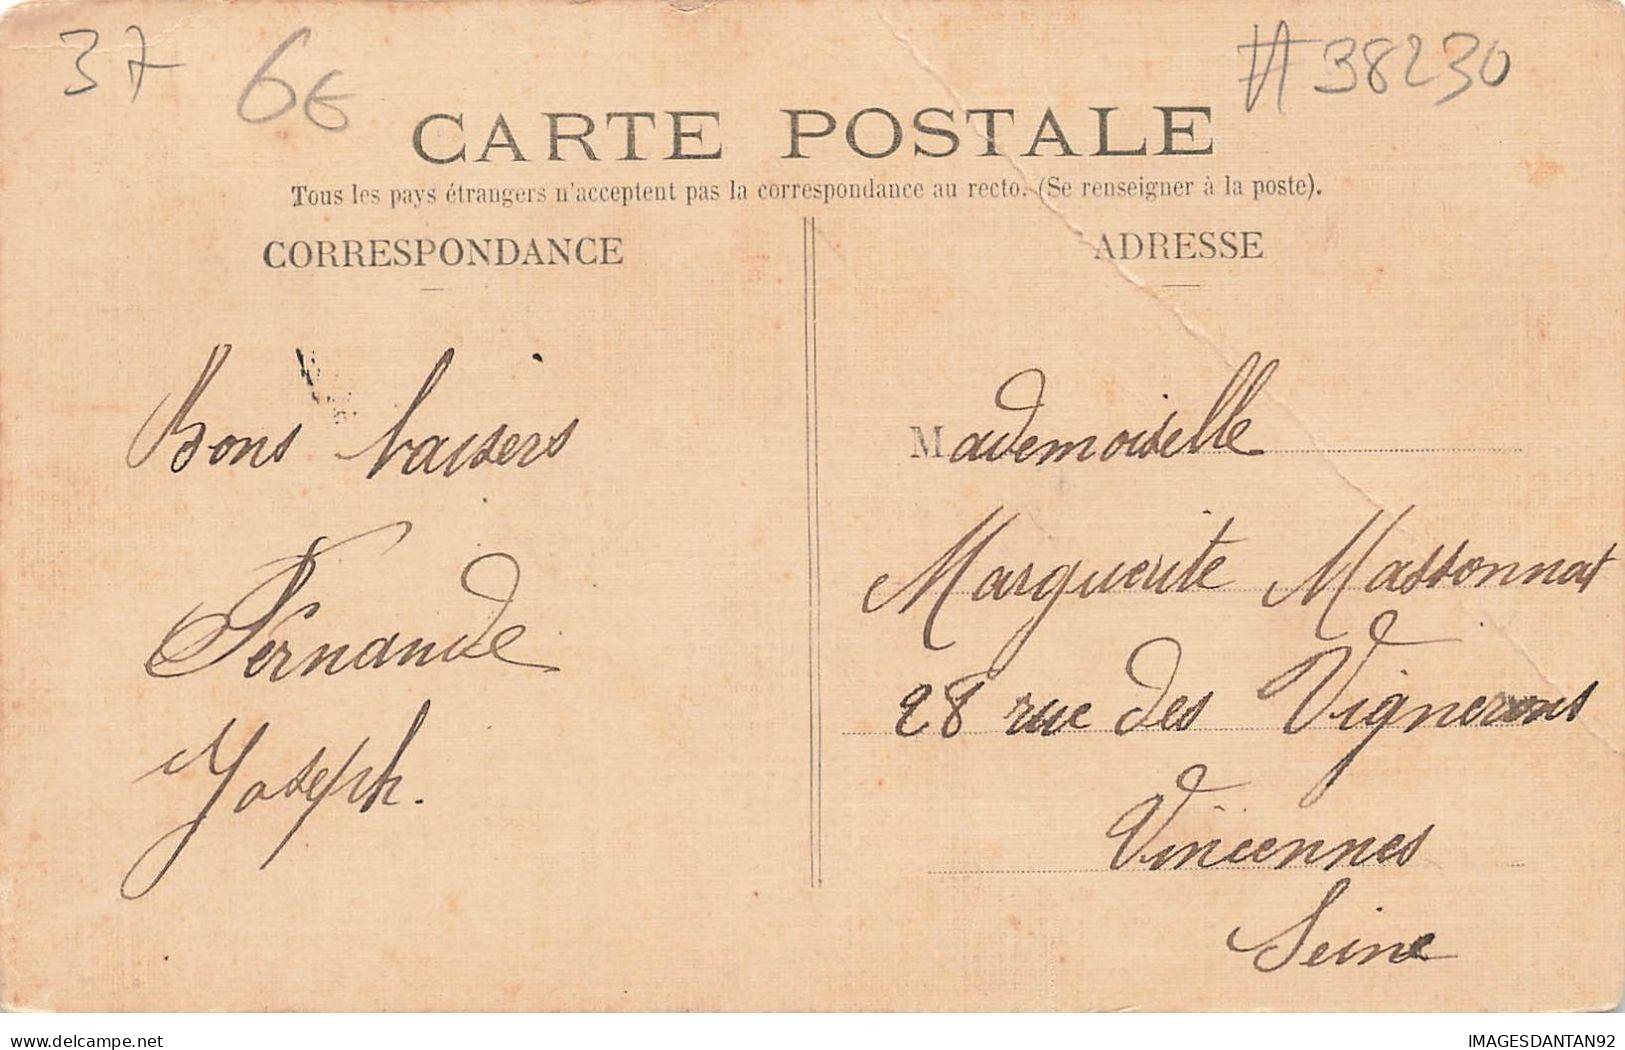 37 6€ #38230
CARTE POSTALE
Tous les pays étrangers n'acceptent pas la correspondance au recto. (Se renseigner à la poste).
CORRESPONDANCE
Bons baisers
Fernande
Joseph.
ADRESSE
Mademoiselle
Marguerite Massonnat
28 rue des Vignerons
Vincennes
Seine
delcampe.net
IMAGESDANTAN92